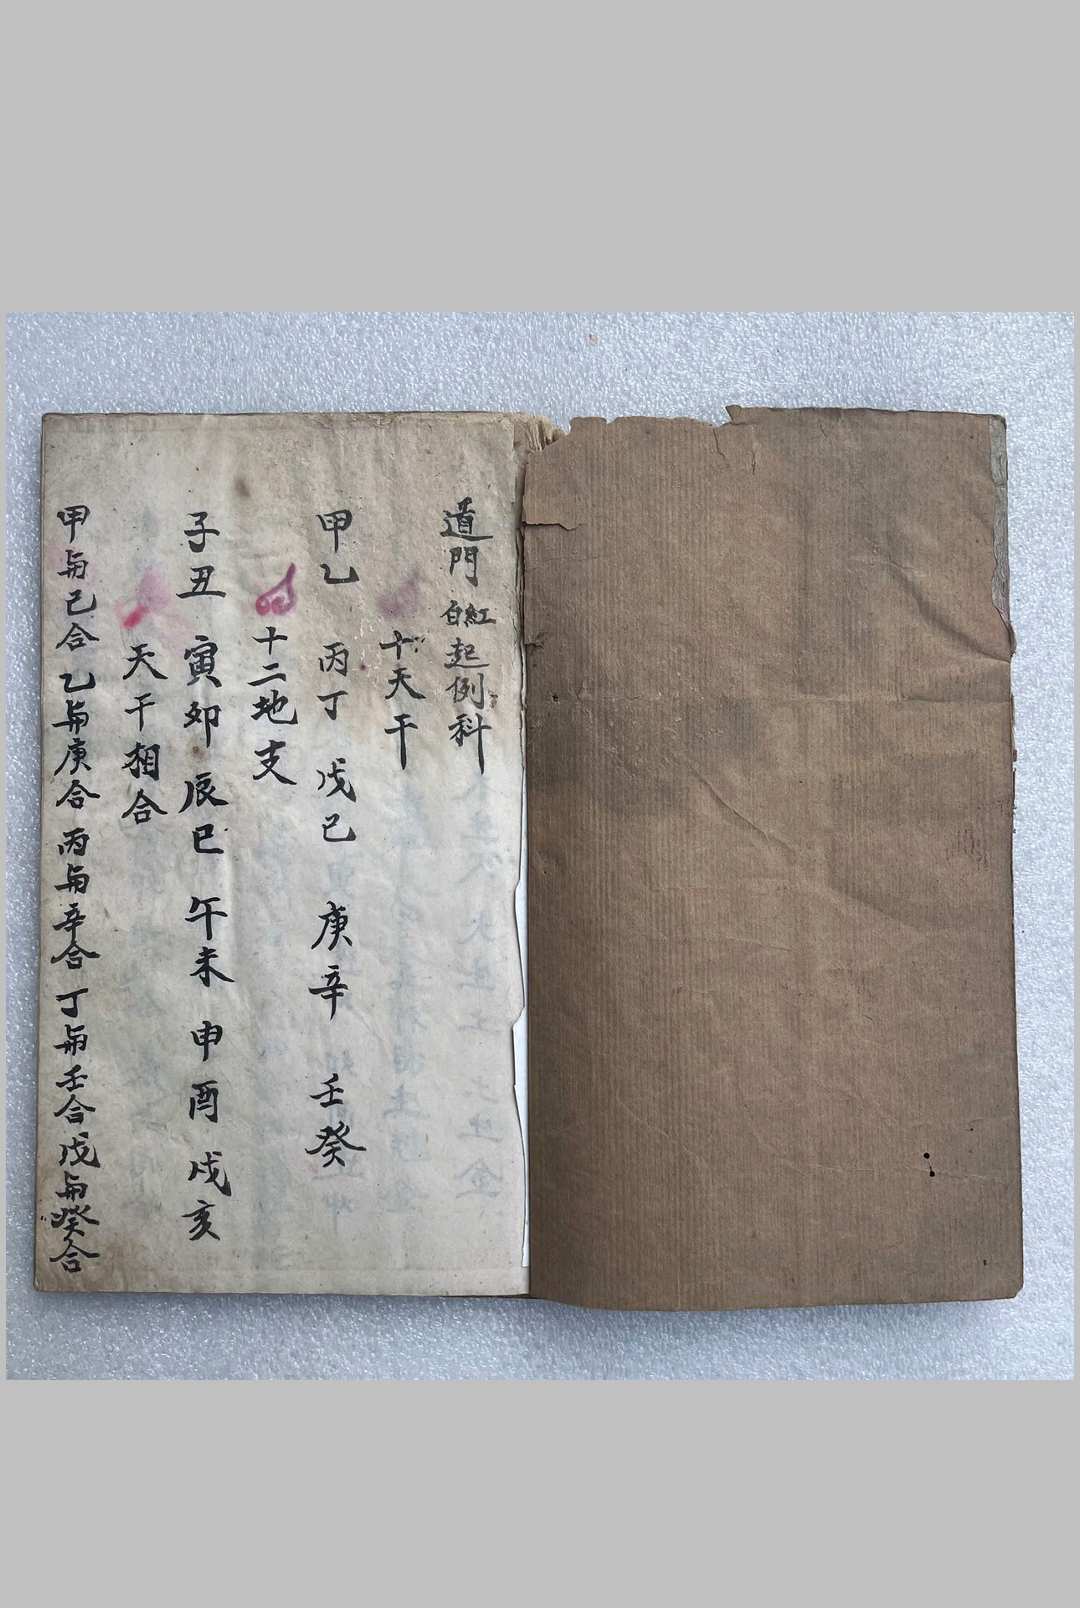 道門紅白起例科
十天干
甲乙 丙丁 戊己 庚辛 壬癸
十二地支
子丑 寅卯 辰巳 午未 申酉 戌亥
天干相合
甲與己合 乙與庚合 丙與辛合 丁與壬合 戊與癸合